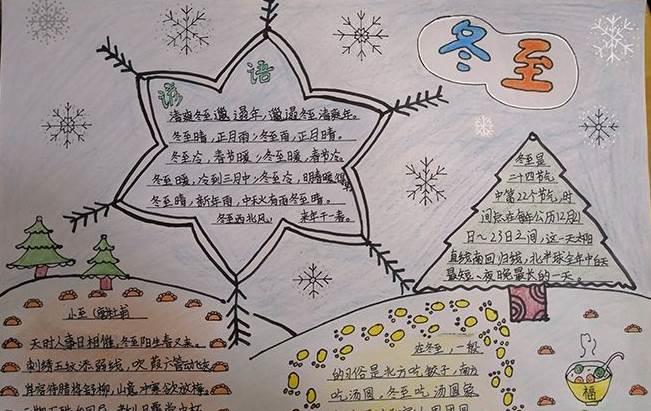 冬至
谚语
清爽冬至邋遢年,邋遢冬至清爽年。
冬至晴,正月雨;冬至雨,正月晴。
冬至冷,春节暖;冬至暖,春节冷。
冬至暖,冷到三月中;冬至冷,明春暖得早
冬至晴,新年雨,中秋有雨冬至晴。
冬至西北风,来年干一春。
冬至是
二十四节气
中第22个节气,时
间是在每年公历12月21
日~23日之间,这一天太阳
直射南回归线,北半球全年中白天
最短、夜晚最长的一天。
小至
天时人事日相催,冬至阳生春又来。
刺绣五纹添弱线,吹葭六管动
岸容待腊将舒柳,山意冲寒欲放梅。
在冬至,一般
的习俗是北方吃饺子,南方
吃汤圆,冬至吃汤圆象
福
福